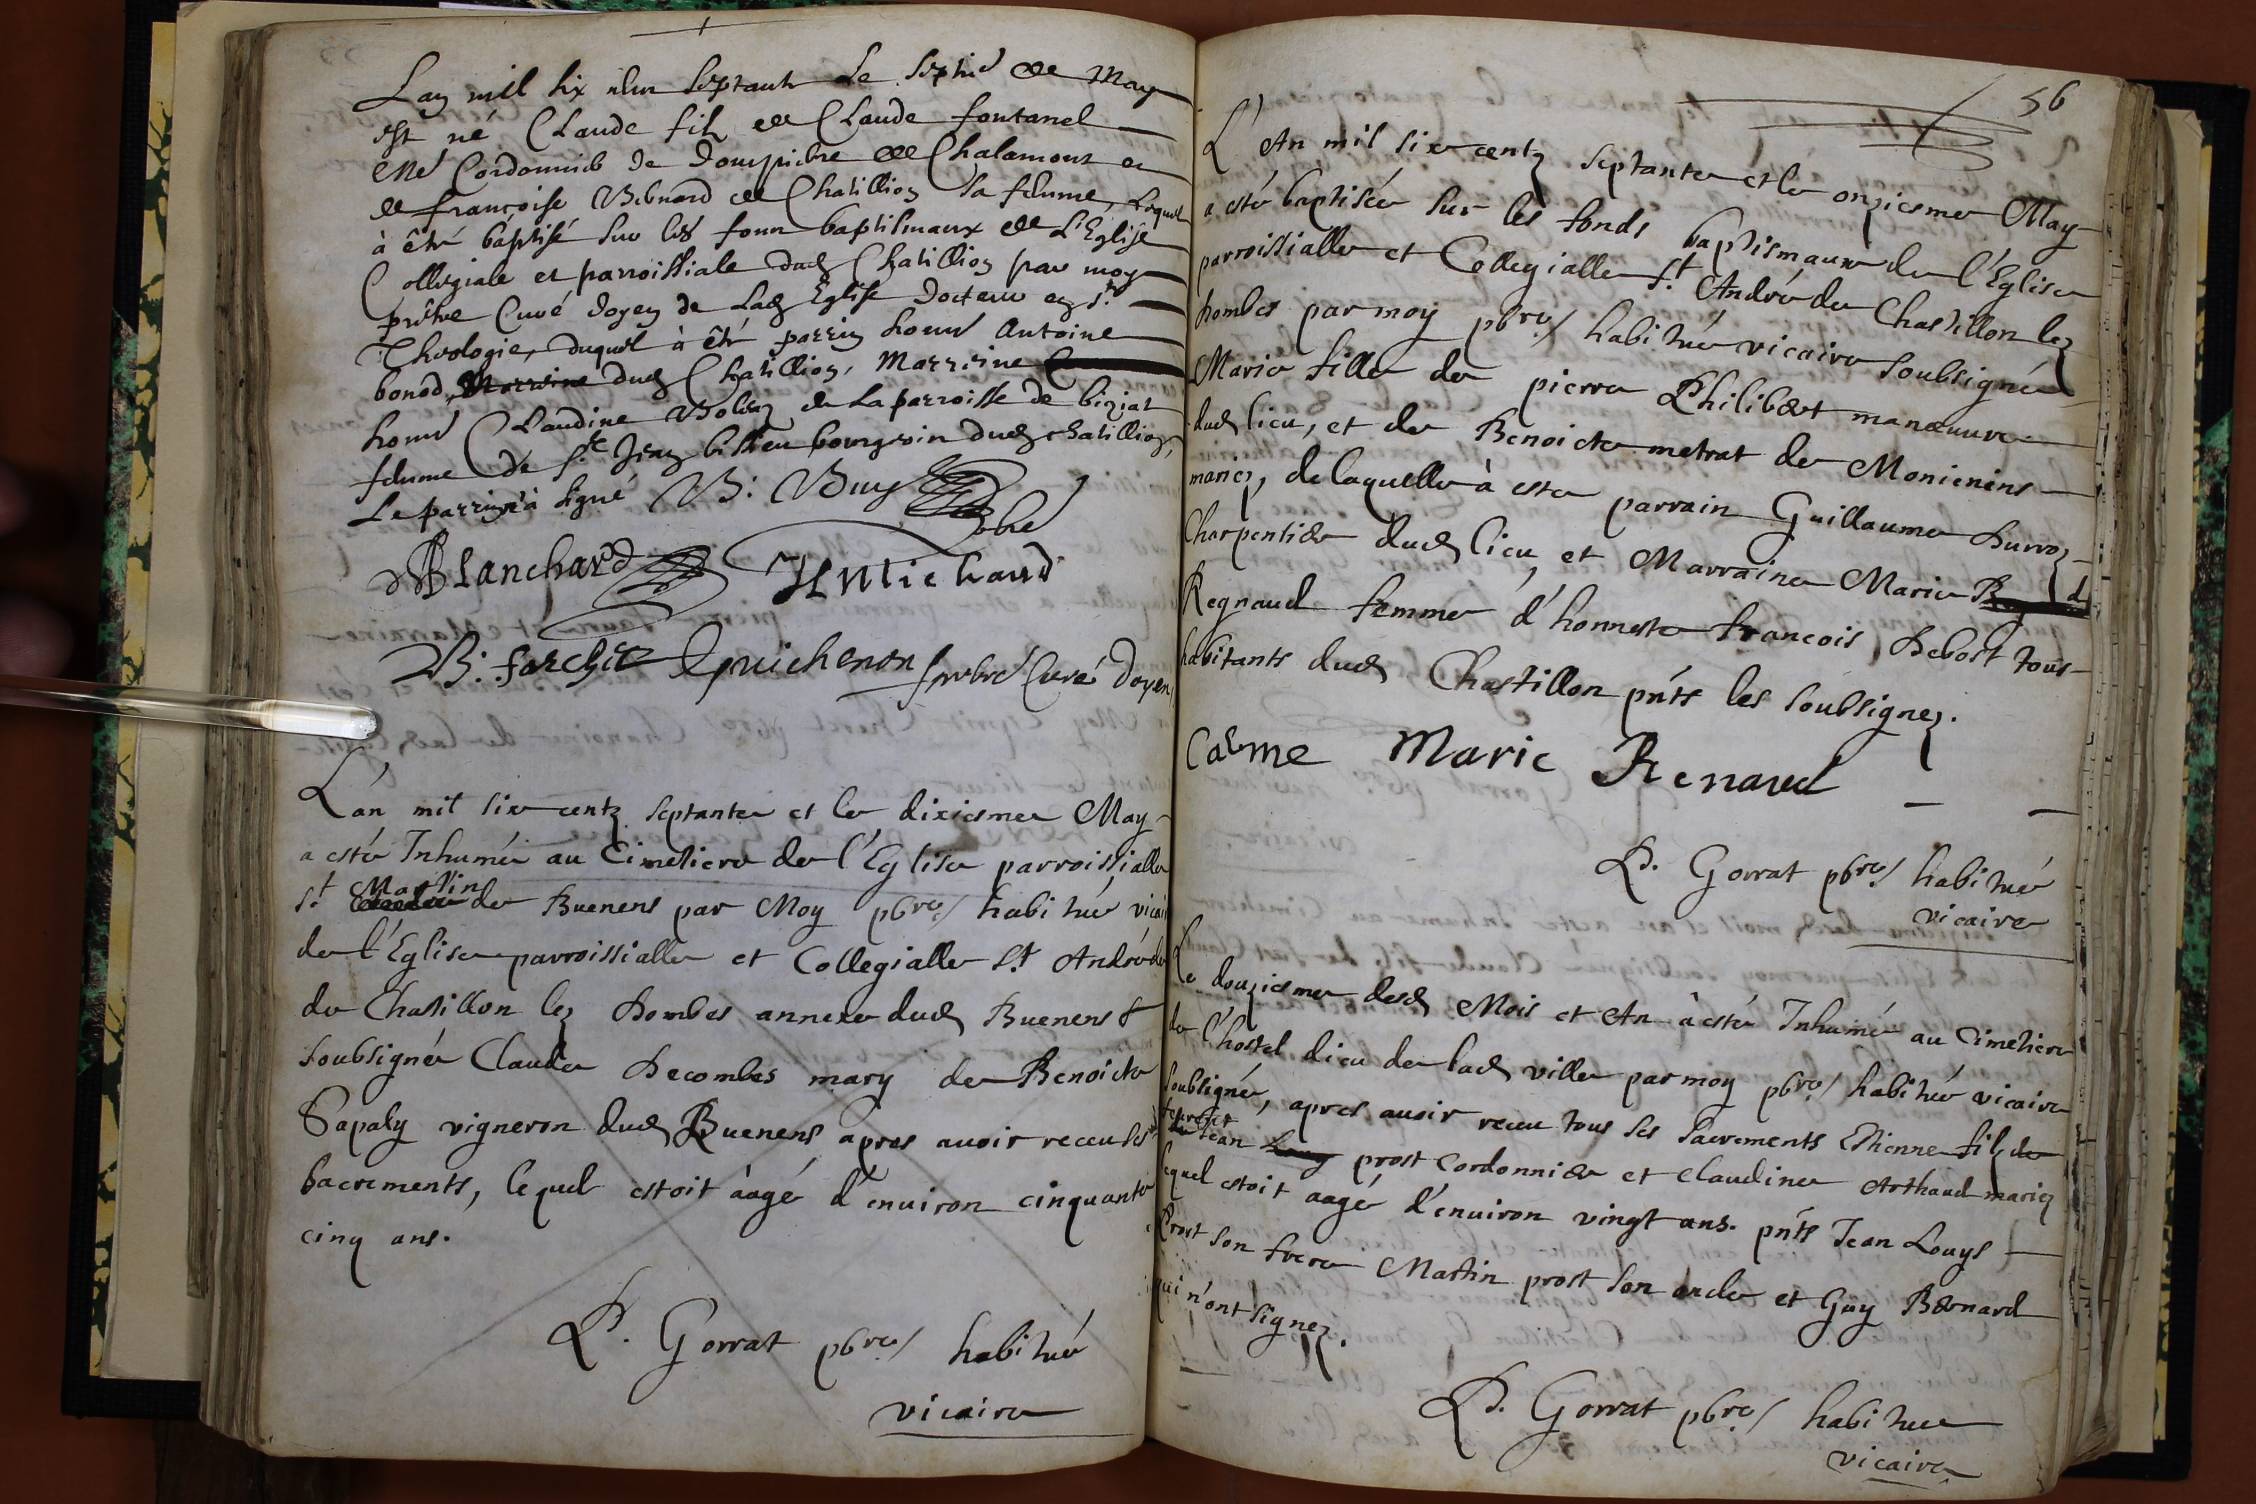 Lan mil six cens septante Le septie de May
est né Claude filz de Claude fontanel
Me Cordonnier de dompierre de Chalamont et
de françoise Bernard de Chatillion sa femme, Loquel
à été baptisé sur les fonts baptismaux de L'Eglise
Collegiale et parroissiale dud Chatillion par moy
prêtre Curé doyen de Lad Eglise docteur en Ste
Theologie, duquel à été parrin honne Antoine
bonod, Marrsine dud Chatillion, Marrine
honne Claudine de La parroisse de biziat
femme de Sr Jean bourgeois dud chatillion,
Le parrin à signé B. Buy
Blanchard Michaud
B. forchet Guichenon prbre Curé doyen
L'an mil six centz septante et le dixiesme May
a esté Inhumé au Cimetiere de l'Eglise parroissialle
St Martin de Buenens par Moy pbre habitué vicai
de l'Eglise parroissialle et Collegialle St André de
de Chatillon lez Dombes annexe dud Buenens &
soubsigné Claude Decombes mary de Benoicte
Papaly vigneron dud Buenens apres avoir receu ses
Sacrements, lequel estoit àagé d'environ cinquante
cinq ans.
P. Gorrat pbre habitué
vicaire
56
L'An mil six centz septante et le onziesme May
a esté baptisée sur les fonds baptismaux de l'Eglise
parroissialle et Collegialle St André de Chastillon lez
Dombes par moy pbre habitué vicaire soubsigné
Marie fille de pierre Philibert manœuvre
dud lieu, et de Benoicte metrat de Monieniens
mariez, de laquelle à este parrain Guillaume Durroz
Charpentier dud lieu et Marraine Marie
Regnaud femme d'honneste francois Debost tous
habitants dud Chastillon pnts les soubsignez.
Carme Marie Renaud
P. Gorrat pbre habitué
vicaire
Le douziesme desd Mois et An à esté Inhumé au Cimetiere
de l'hostel dieu de lad ville par moy pbre habitué vicaire
soubsigné, apres avoir receu tous ses Sacrements Estienne filz de
feu Jean Louy prost Cordonnier et Claudine Arthaud mariez
lequel estoit aagé d'environ vingt ans. pnts Jean Louys
Prost son frere Martin prost son oncle et Guy Bernard
qui n'ont signez.
P. Gorrat pbre habitue
vicaire